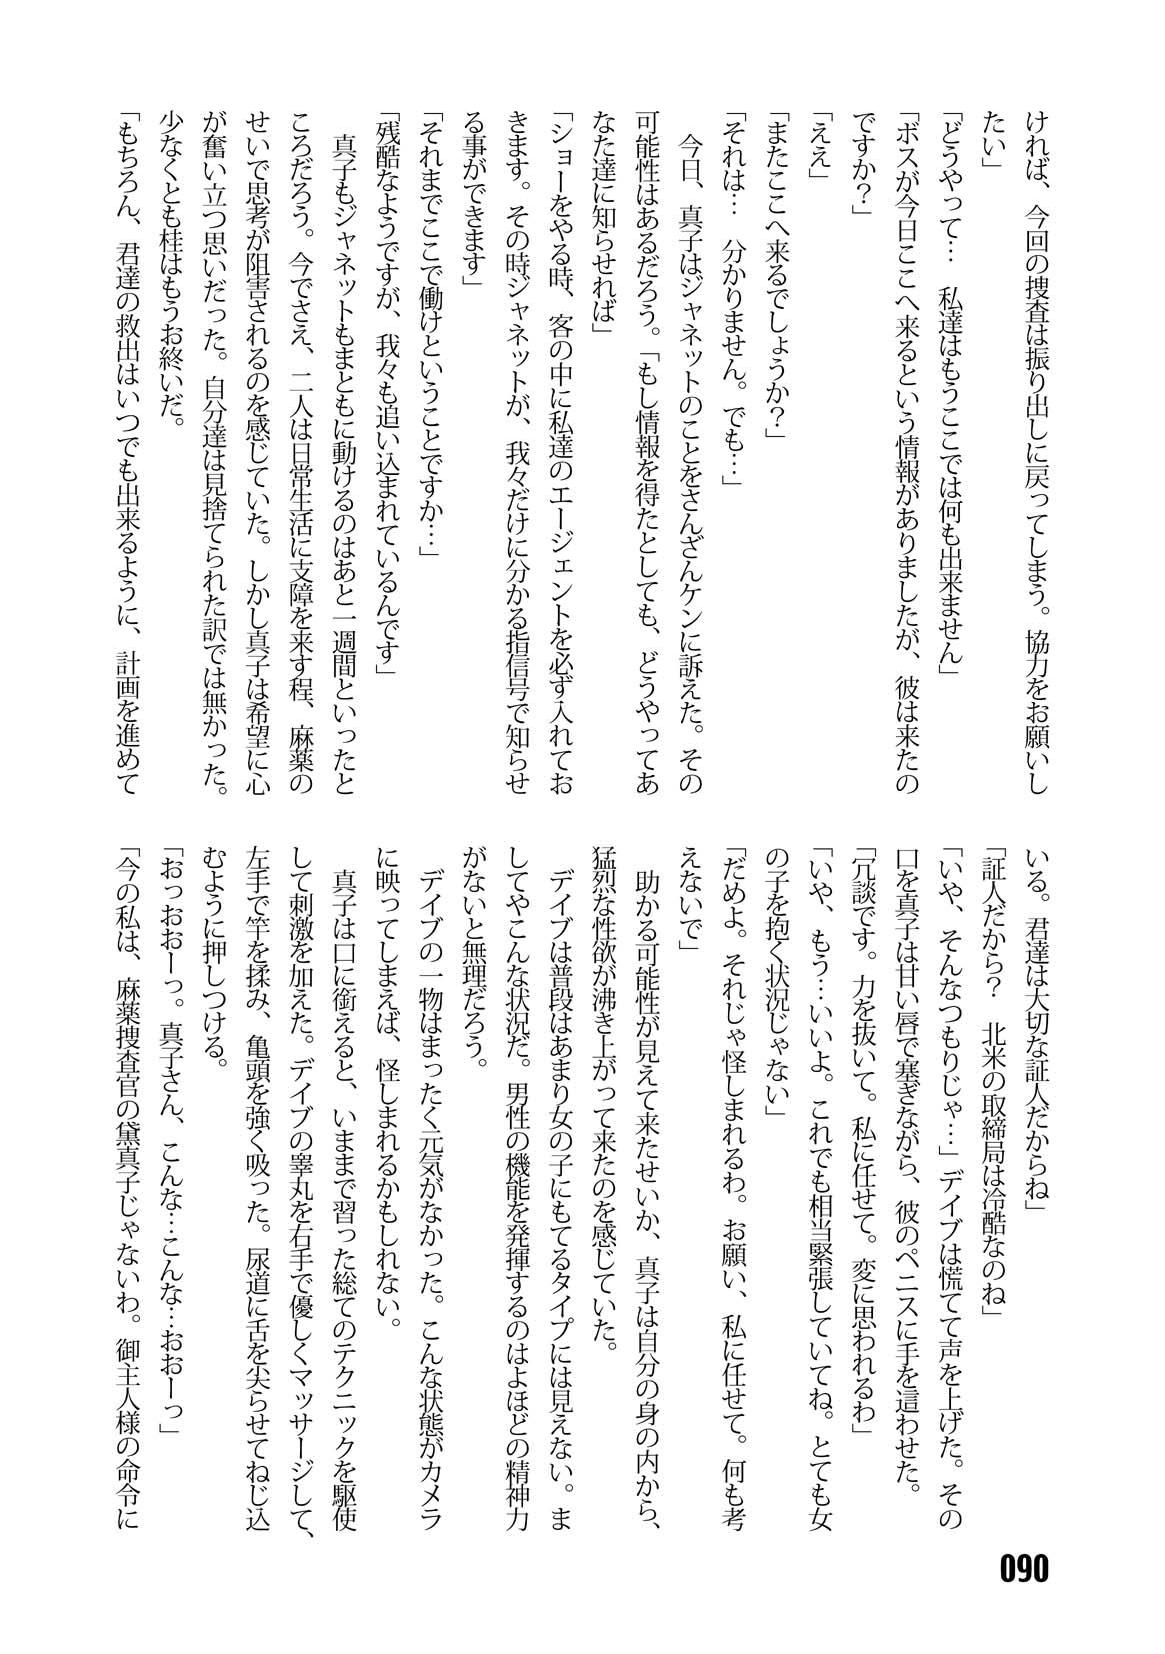 ければ、今回の捜査は振り出しに戻ってしまう。協力をお願いし
たい」
「どうやって…　私達はもうここでは何も出来ません」
「ボスが今日ここへ来るという情報がありましたが、彼は来たの
ですか？」
「ええ」
「またここへ来るでしょうか？」
「それは…　分かりません。でも…」
　今日、真子はジャネットのことをさんざんケンに訴えた。その
可能性はあるだろう。「もし情報を得たとしても、どうやってあ
なた達に知らせれば」
「ショーをやる時、客の中に私達のエージェントを必ず入れてお
きます。その時ジャネットが、我々だけに分かる指信号で知らせ
る事ができます」
「それまでここで働けということですか…」
「残酷なようですが、我々も追い込まれているんです」
　真子もジャネットもまともに動けるのはあと一週間といったと
ころだろう。今でさえ、二人は日常生活に支障を来す程、麻薬の
せいで思考が阻害されるのを感じていた。しかし真子は希望に心
が奮い立つ思いだった。自分達は見捨てられた訳では無かった。
少なくとも桂はもうお終いだ。
「もちろん、君達の救出はいつでも出来るように、計画を進めて
いる。君達は大切な証人だからね」
「証人だから？　北米の取締局は冷酷なのね」
「いや、そんなつもりじゃ…」デイブは慌てて声を上げた。その
口を真子は甘い唇で塞ぎながら、彼のペニスに手を這わせた。
「冗談です。力を抜いて。私に任せて。変に思われるわ」
「いや、もう…いいよ。これでも相当緊張していてね。とても女
の子を抱く状況じゃない」
「だめよ。それじゃ怪しまれるわ。お願い、私に任せて。何も考
えないで」
　助かる可能性が見えて来たせいか、真子は自分の身の内から、
猛烈な性欲が沸き上がって来たのを感じていた。
　デイブは普段はあまり女の子にもてるタイプには見えない。ま
してやこんな状況だ。男性の機能を発揮するのはよほどの精神力
がないと無理だろう。
　デイブの一物はまったく元気がなかった。こんな状態がカメラ
に映ってしまえば、怪しまれるかもしれない。
　真子は口に銜えると、いままで習った総てのテクニックを駆使
して刺激を加えた。デイブの睾丸を右手で優しくマッサージして、
左手で竿を揉み、亀頭を強く吸った。尿道に舌を尖らせてねじ込
むように押しつける。
「おっおおーっ。真子さん、こんな…こんな…おおーっ」
「今の私は、麻薬捜査官の黛真子じゃないわ。御主人様の命令に
090